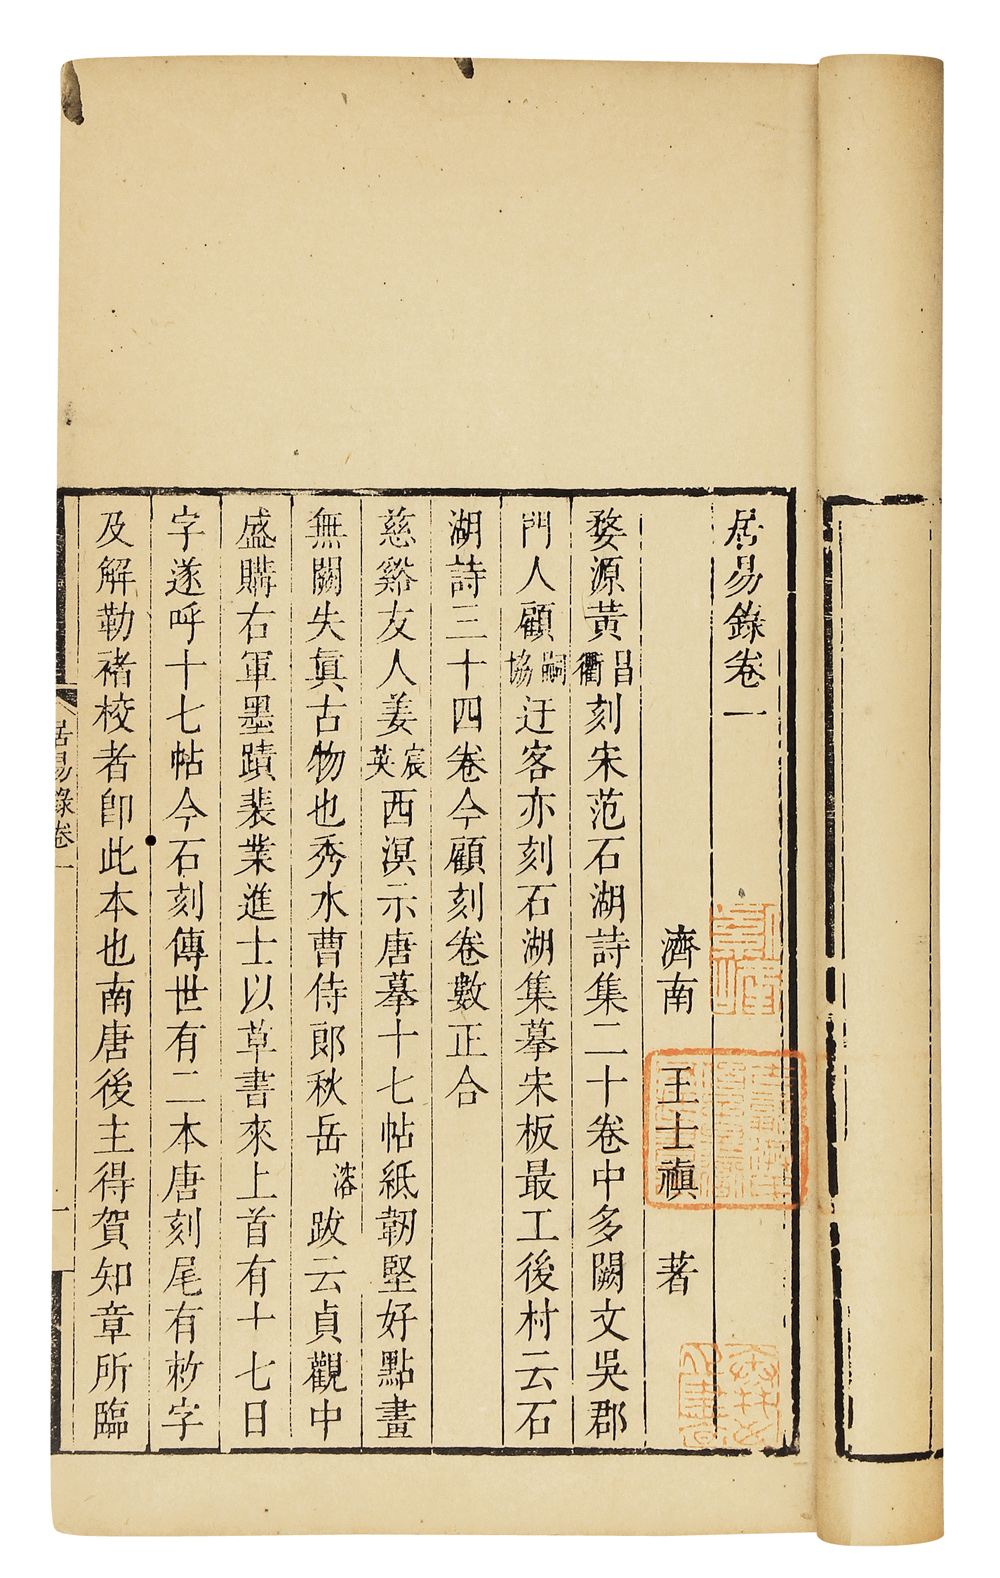 居易錄卷一
濟南 王士禛 著
婺源黃昌衢刻宋范石湖詩集二十卷中多闕文吳郡
門人顧嗣協迂客亦刻石湖集摹宋板最工後村云石
湖詩三十四卷今顧刻卷數正合
慈谿友人姜宸英西溟示唐摹十七帖紙韌堅好點畫
無闕失眞古物也秀水曹侍郎秋岳溶跋云貞觀中
盛購右軍墨蹟裴業進士以草書來上首有十七日
字遂呼十七帖今石刻傳世有二本唐刻尾有敕字
及解勒褚校者卽此本也南唐後主得賀知章所臨
居易錄卷一
一